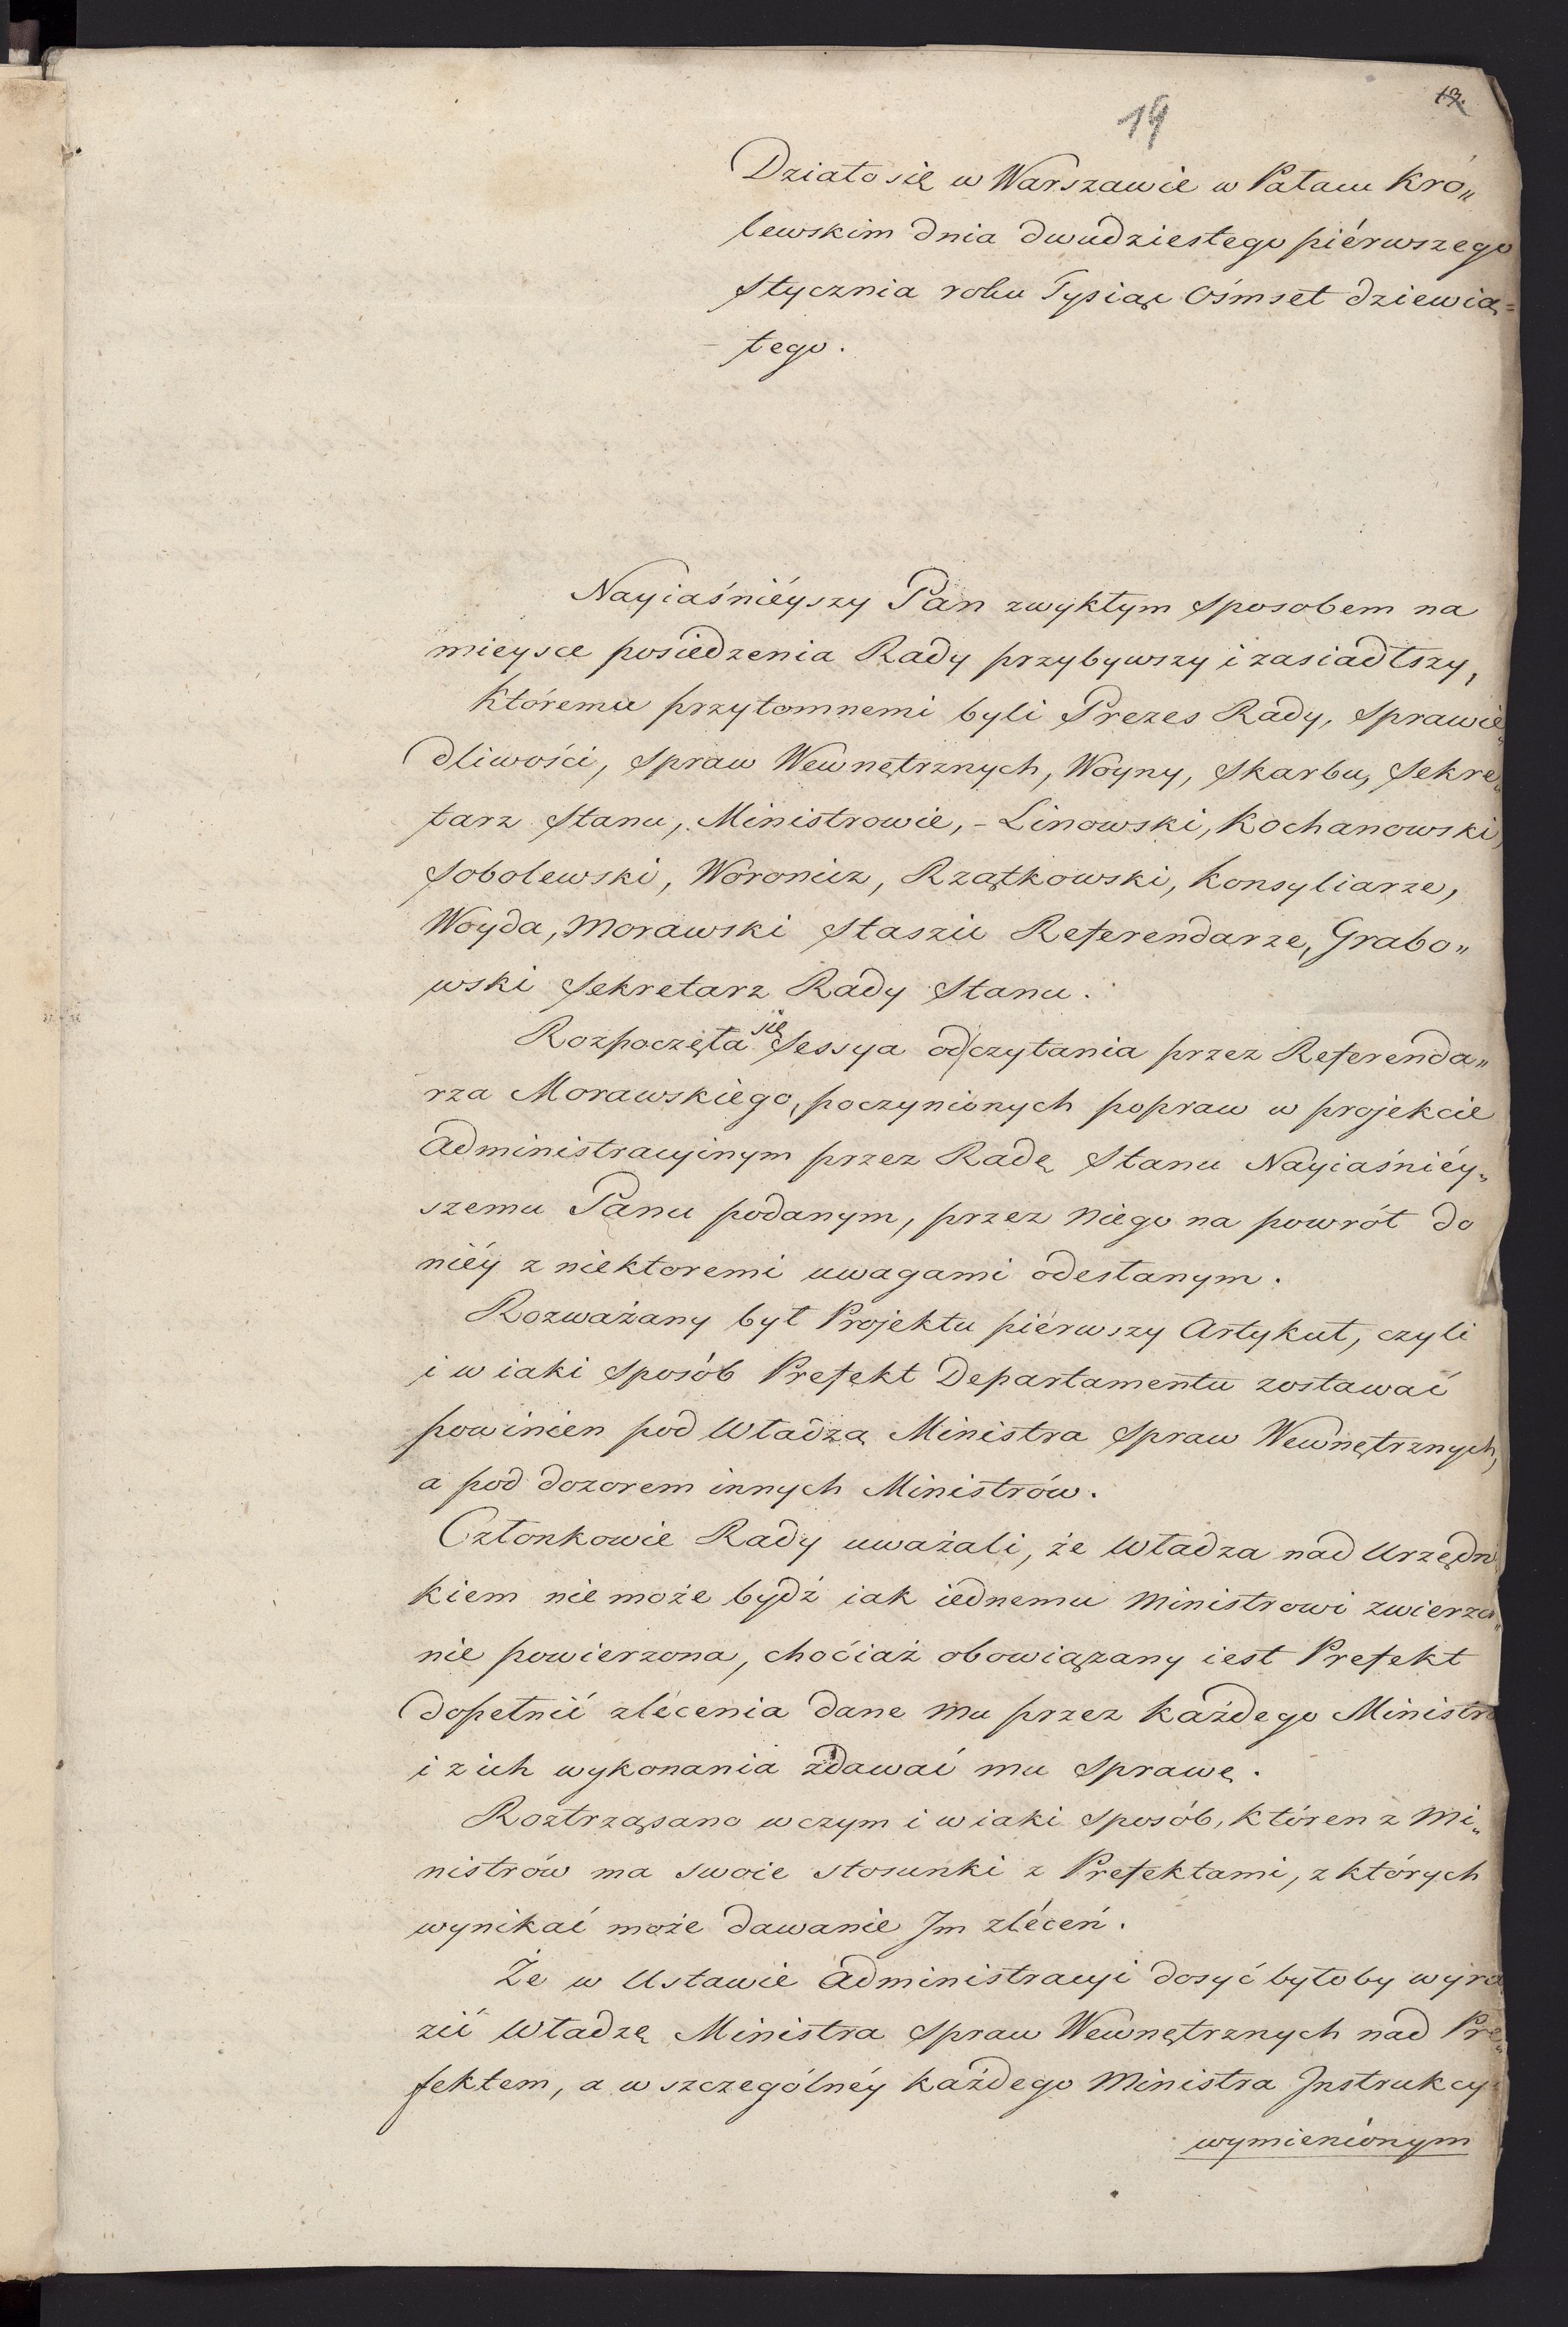 19
19.
Działo się w Warszawie w Pałacu Kró„
lewskim dnia dwudziestego piérwszego
Stycznia roku Tysiąc Ośmset dziewią=
tego.
Nayiaśniéyszy Pan zwykłym sposobem na
mieysce posiedzenia Rady przybywszy i zasiadłszy,
któremu przytomnemi byli Prezes Rady, Sprawie„
dliwości, Spraw Wewnętrznych, Woyny, Skarbu, Sekre„
tarz Stanu, Ministrowie, - Linowski, Kochanowski,
Sobolewski, Woronicz, Rzątkowski, Konsyliarze,
Woyda, Morawski Staszic Referendarze, Grabo„
wski Sekretarz Rady Stanu.
Rozpoczęła się Sessya od czytania przez Referenda„
rza Morawskiego, poczynionych popraw w projekcie
Administracyinym przez Radę Stanu Nayiaśniéy„
szemu Panu podanym, przez Niego na powrót do
niéy z niektoremi uwagami odesłanym.
Rozważany był Projektu piérwszy Artykuł, czyli
i w iaki sposób Prefekt Departamentu zostawać
powinien pod Władzą Ministra Spraw Wewnętrznych,
a pod dozorem innych Ministrów.
Członkowie Rady uważali, że Władza nad Urzędni
kiem nie może bydź iak iednemu Ministrowi zwierza„
nie powierzona, chociaż obowiązany iest Prefekt
dopełnić zlécenia dane mu przez każdego Ministra
i z ich wykonania zdawać mu Sprawę.
Roztrząsano w czym i w iaki Sposób, któren z Mi„
nistrów ma swoie stosunki z Prefektami, z których
wynikać może dawanie Im zléceń.
Że w Ustawie Administracyi dosyć byłoby wyra
zić Władzę Ministra Spraw Wewnętrznych nad Pre„
fektem, a w szczególnéy każdego Ministra Instrukcy
wymieniónym